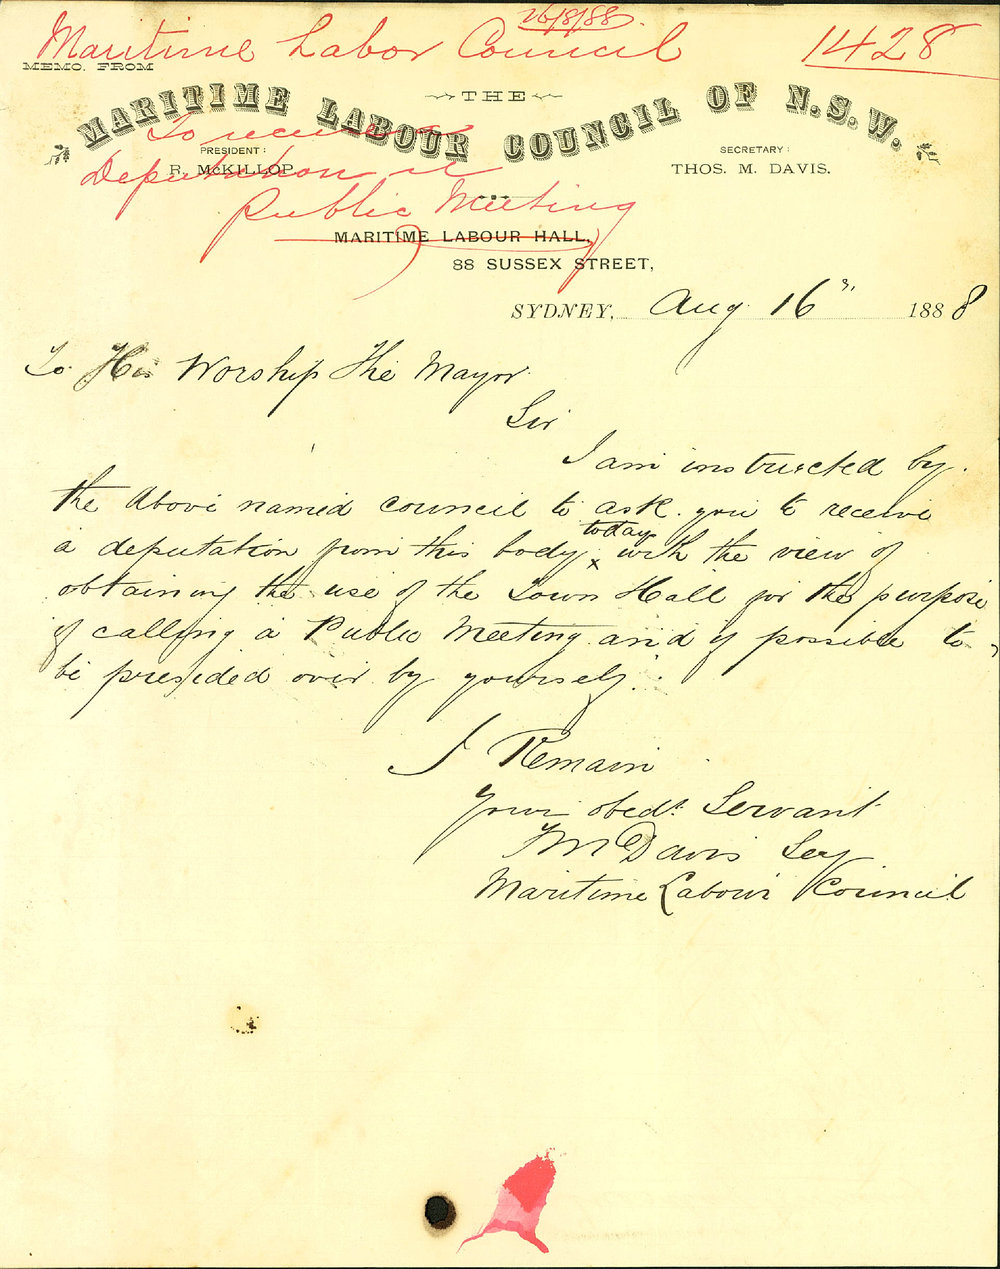 26/8/88
Maritime Labor Council 1428
MEMO. FROM
THE
MARITIME LABOUR COUNCIL OF N.S.W.
To receive a
PRESIDENT: SECRETARY:
R. McKILLOP. THOS. M. DAVIS.
Deputation re
Public Meeting
MARITIME LABOUR HALL,
88 SUSSEX STREET,
SYDNEY, Aug 16th 1888
To His Worship The Mayor
Sir
I am instructed by
the above named council to ask you to receive
today
a deputation from this body x with the view of
obtaining the use of the Town Hall for the purpose
of calling a Public Meeting and if possible to
be presided over by yourself.
I Remain
Your obedt Servant
T M Davis Secy
Maritime Labour Council